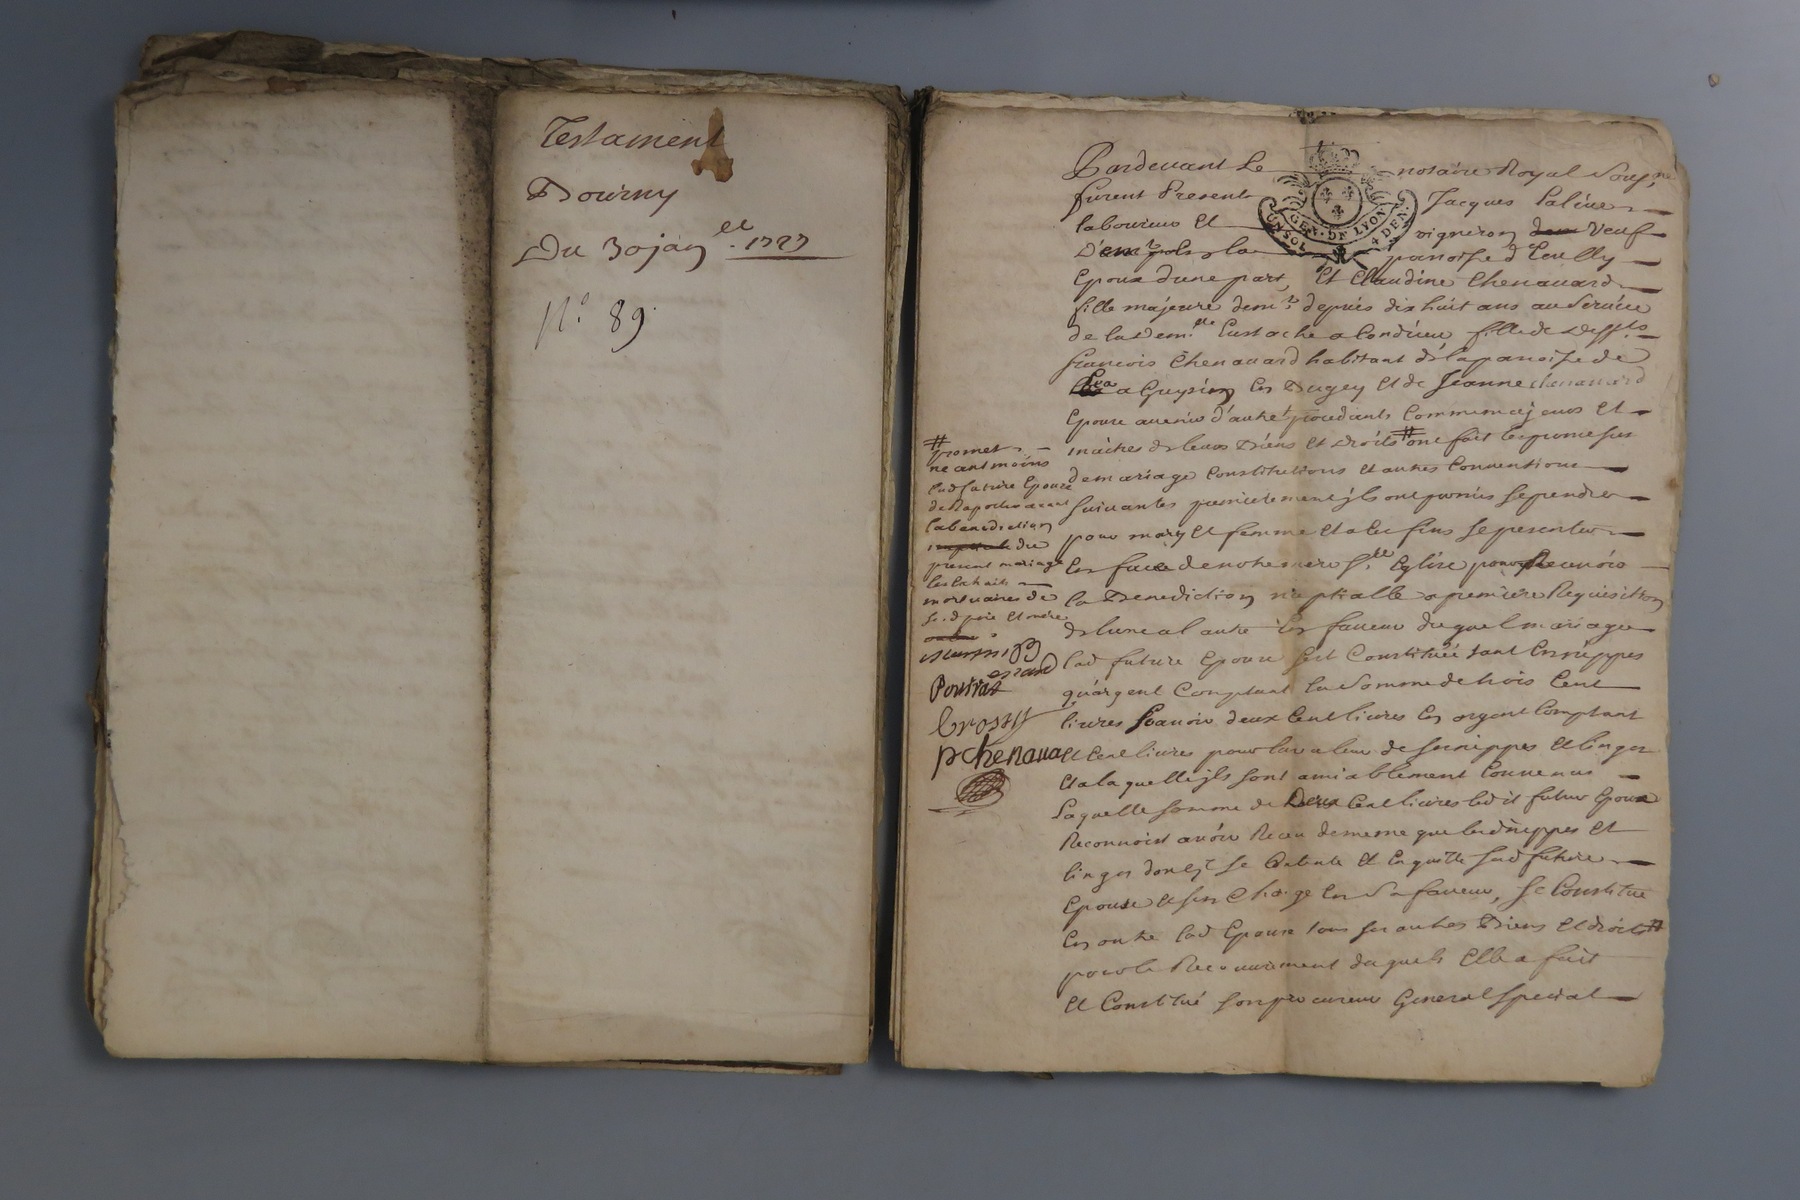 Testament
Bourny
Du 30 jan
N.° 89.
Pardevant Le notaire Royal sousg.né
furent Presents Jacques
laboureur et vigneron veuf
paroisse d
Epoux d'une part, Et Claudine Chenavard
fille majeure dem.t depuis dix huit ans au service
de la Dem.lle Eustache a Condrieu fille de deff.ts
francois Chenavard habitant de la paroisse de
en Bugey et de Jeanne chenavard
Epouse avenir d'autre procedants Comme majeurs et
maitres de leurs Biens et droits # ont fait les promesses
de mariage Constitutions et autres Conventions
suivantes premierement ils ont promis se prendre
pour mary et femme et a les fins se presenter
En face de notre mere s.te Eglise pour Recevoir
la Benediction nuptialle a premiere Requisition
de l'une a l'autre En faveur duquel mariage
lad future Epouse s'est Constituée tant En nippes
qu'argent Comptant la somme de trois Cent
livres scavoir deux Cent livres En argent Comptant
et Cent livres pour la valeur de ses nippes et linges
Et a laquelle ils sont amiablement Convenus
laquelle somme de Deux Cent livres ledit futur Epoux
Reconnoist avoir Receu de meme que lesd nippes et
linges dont il se Contente et En quitte sad future
Epouse et s'en Charge En sa faveur, se Constitue
En outre lad Epouse tous ses autres Biens et droits #
pour le Recouvrement desquels Elle a fait
et Constitué son procureur General special
# promet
neantmoins
lad future Epouse
de Raporter avant
la benediction
du
present mariage
les Extraits
mortuaires de
sesd pere et mere
pchenava
GEN. DE LYON
UN SOL 4 DEN.